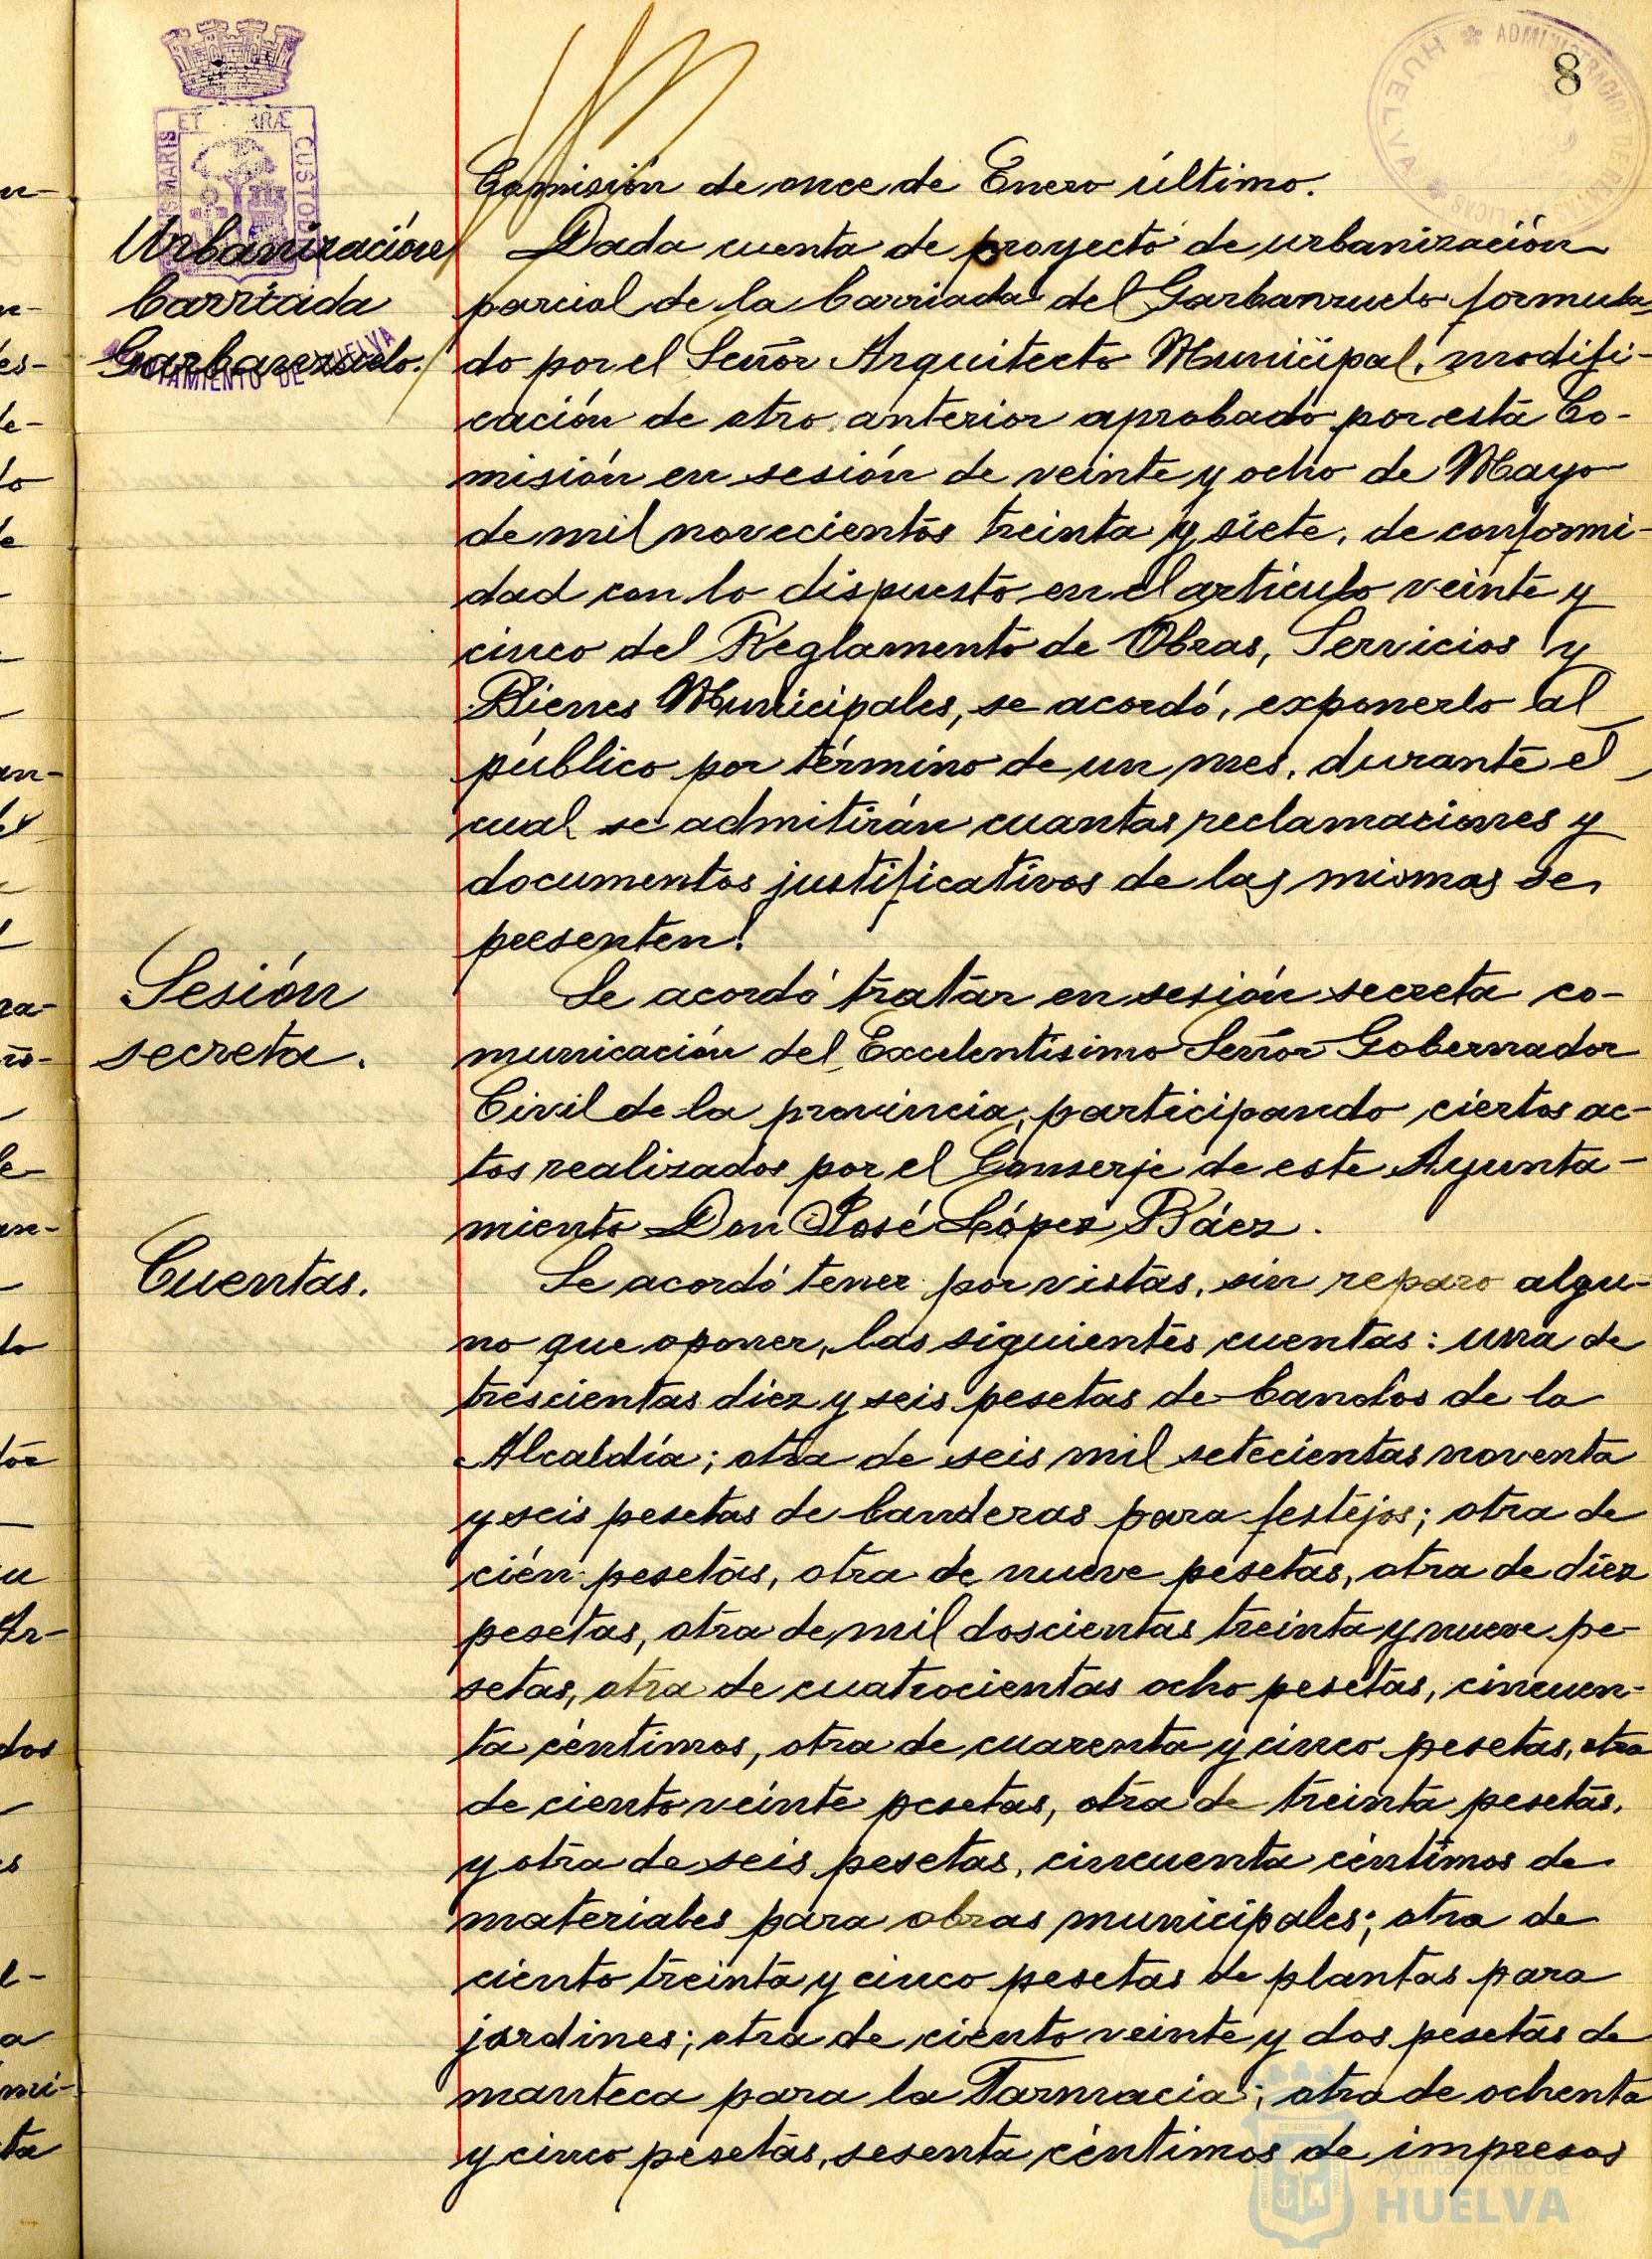 8
ET TERRÆ
MARIS
CUSTODI
AYUNTAMIENTO DE HUELVA
HUELVA * ADMINISTRACION
Comisión de once de Enero último.
Urbanización
barriada
Garbanzuelo.
Dada cuenta de proyecto de urbanización
parcial de la barriada del Garbanzuelo formula-
do por el Señor Arquitecto Municipal, modifi-
cación de otro anterior aprobado por esta Co-
misión en sesión de veinte y ocho de Mayo
de mil novecientos treinta y siete, de conformi-
dad con lo dispuesto en el artículo veinte y
cinco del Reglamento de Obras, Servicios y
Bienes Municipales, se acordó, exponerlo al
público por término de un mes, durante el
cual se admitirán cuantas reclamaciones y
documentos justificativos de las mismas se
presenten.
Sesión
secreta.
Se acordó tratar en sesión secreta co-
municación del Excelentísimo Señor Gobernador
Civil de la provincia, participando ciertos ac-
tos realizados por el Conserje de este Ayunta-
miento Don José López Báez.
Cuentas.
Se acordó tener por vistas, sin reparo algu-
no que oponer, las siguientes cuentas: una de
trescientas diez y seis pesetas de bandos de la
Alcaldía; otra de seis mil setecientas noventa
y seis pesetas de banderas para festejos; otra de
cién pesetas, otra de nueve pesetas, otra de diez
pesetas, otra de mil doscientas treinta y nueve pe-
setas, otra de cuatrocientas ocho pesetas, cincuen-
ta céntimos, otra de cuarenta y cinco pesetas, otra
de ciento veinte pesetas, otra de treinta pesetas,
y otra de seis pesetas, cincuenta céntimos de
materiales para obras municipales; otra de
ciento treinta y cinco pesetas de plantas para
jardines; otra de ciento veinte y dos pesetas de
manteca para la Farmacia; otra de ochenta
y cinco pesetas, sesenta céntimos de impresos
Ayuntamiento de
HUELVA